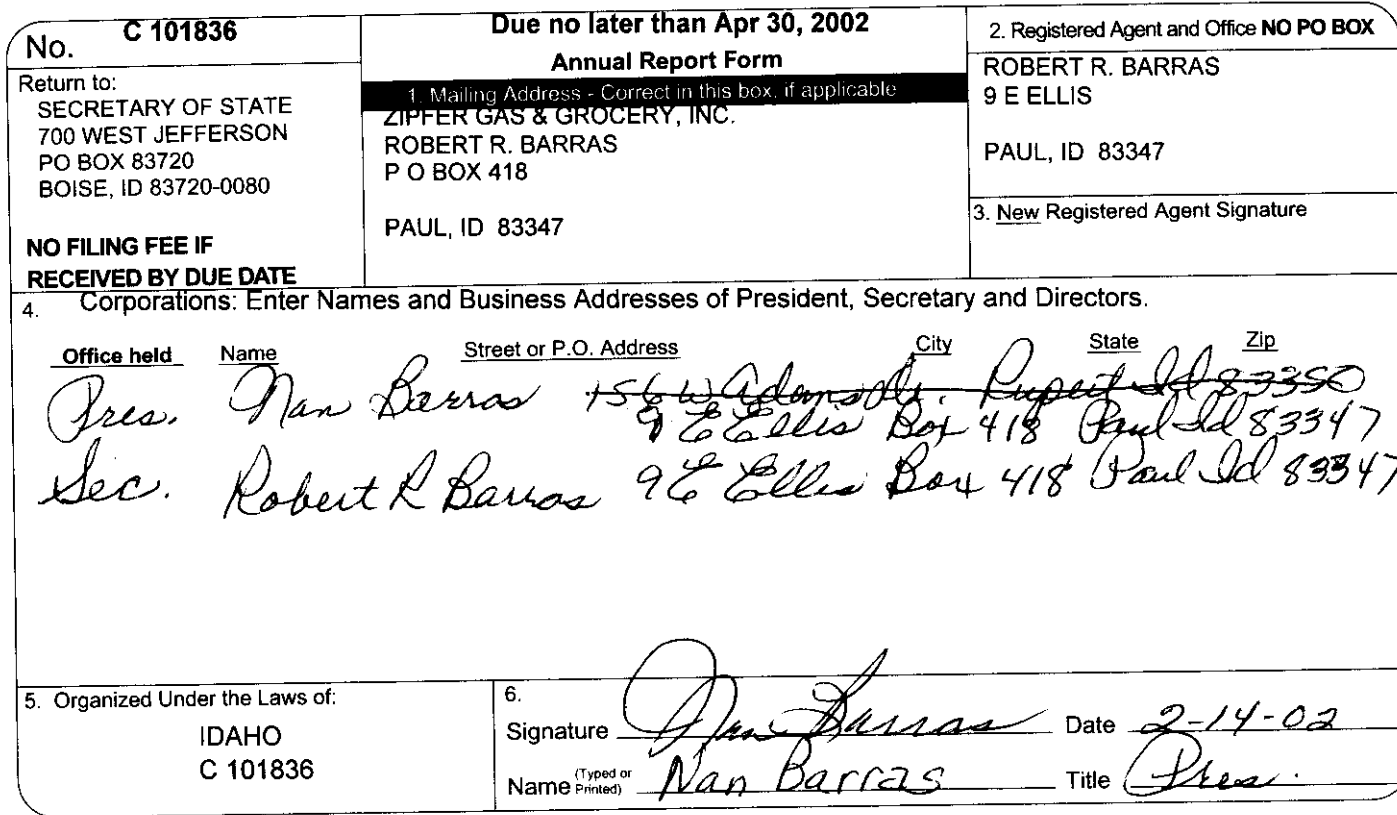 No. C 101836
Return to:
SECRETARY OF STATE
700 WEST JEFFERSON
PO BOX 83720
BOISE, ID 83720-0080
NO FILING FEE IF
RECEIVED BY DUE DATE
Due no later than Apr 30, 2002
Annual Report Form
1. Mailing Address - Correct in this box, if applicable
ZIPFER GAS & GROCERY, INC.
ROBERT R. BARRAS
P O BOX 418
PAUL, ID 83347
2. Registered Agent and Office NO PO BOX
ROBERT R. BARRAS
9 E ELLIS
PAUL, ID 83347
3. New Registered Agent Signature
4. Corporations: Enter Names and Business Addresses of President, Secretary and Directors.
Office held Name Street or P.O. Address City State Zip
Pres. Nan Barras 156 W Adams Dr. Rupert Id 83350
9 E Ellis Box 418 Paul Id 83347
Sec. Robert R Barras 9 E Ellis Box 418 Paul Id 83347
5. Organized Under the Laws of:
IDAHO
C 101836
6.
Signature Nan Barras Date 2-14-02
Name (Typed or Printed) Nan Barras Title Pres.